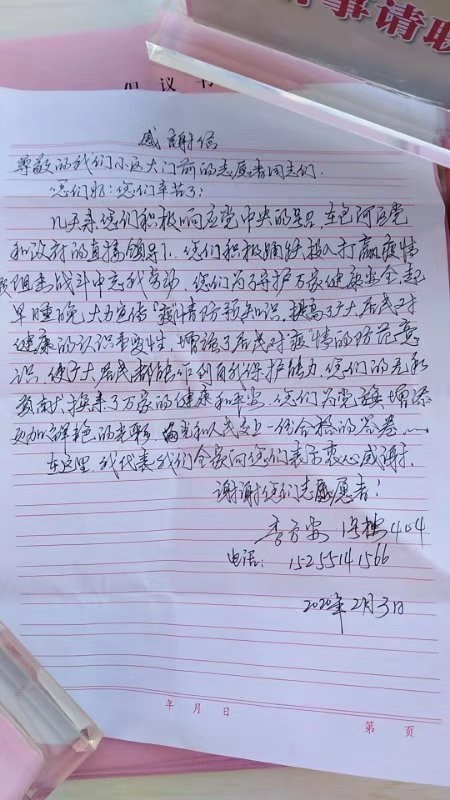 事请联
倡议书
感谢信
尊敬的我们小区大门前的志愿者同志们.
您们好:您们辛苦了:
几天来您们积极响应党中央的号召,在包河区党
和政府的直接领导下,您们积极踊跃投入打赢疫情
阻击战斗中忘我劳动,您们为了守护万家健康安全,起
早睡晚,大力宣传"疫情防预知识,提高了广大居民对
健康的认识重要性,增强了居民对疫情的防范意
识,使广大居民都能作到自我保护能力,您们的无私
贡献,换来了万家的健康和平安,您们为党旗增添
更加鲜艳的光彩,向党和人民交上一份合格的答卷……
在这里,我代表我们全家向您们表示衷心感谢.
谢谢您们志愿者!
李 安 1号楼404
电话: 15255141566
2020年2月3日
年 月 日
第 页